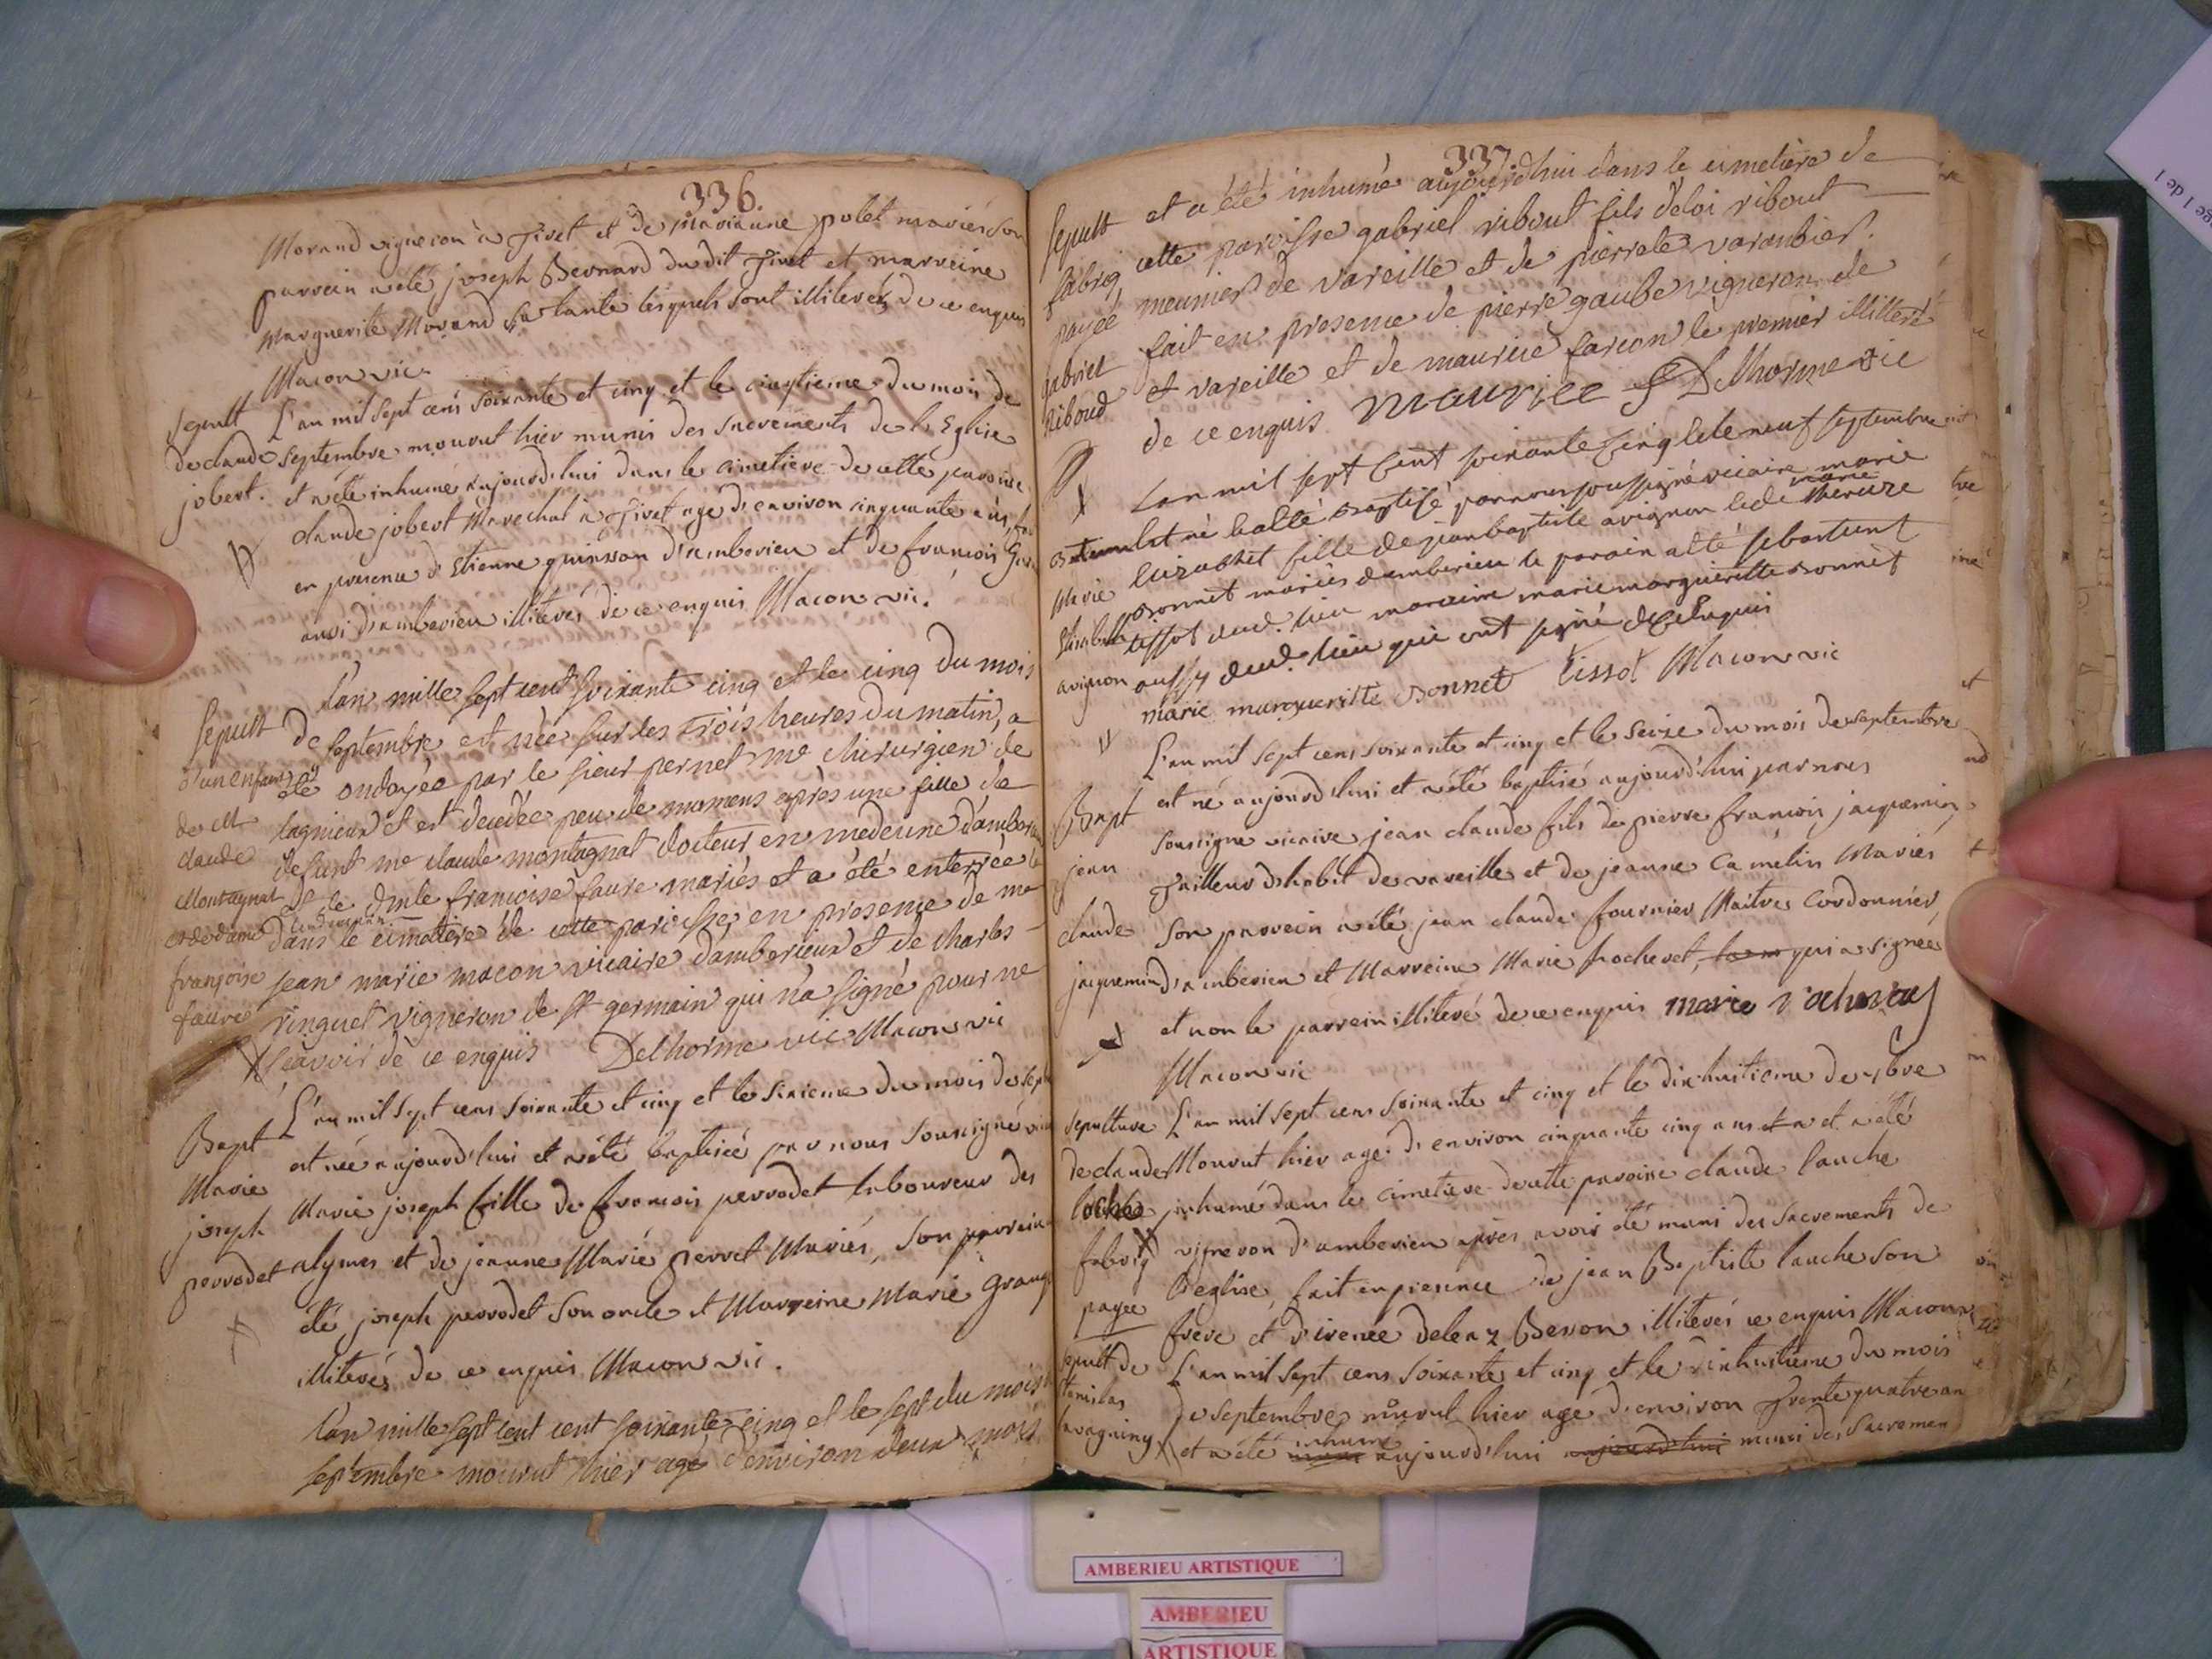 336.
Morand vigneron à Tiret et de marianne polet mariés son
parrein a été joseph Bernard du dit Tiret et marreine
Marguerite Morand sa tante lesquels sont illiterés de ce enquis
Macon vic.
Sepult
de claude
jobert.
L'an mil sept cens soixante et cinq et le cinqtieme du mois de
septembre mourut hier munis des sacrements de l'Eglise
et a été inhumé aujourd'hui dans le cimetiere de cette paroisse
claude jobert Marechal à Tiret agé d'environ cinquante ans,
en presence d'Etienne quinson d'amberieu et de francois
aussi d'amberieu illiterés de ce enquis Macon vic.
Sepult
d'un enfant
de M
claude
Montagnat
et de dame
françoise
faure
L'an mille sept cent soixante cinq et le cinq du mois
de septembre est née sur les trois heures du matin, a
été ondoyée par le sieur pernet me chirurgien de
lagnieux et est decedée peu de momens après une fille de
defunt me claude montagnat docteur en medecine d'amberieu
et de dmle francoise faure mariés et a été enterrée le
lendemain
dans le cimetière de cette paroisse, en presence de me
jean marie macon vicaire d'amberieux et de charles
ringuet vigneron de st germain qui n'a signé pour ne
scavoir de ce enquis Delhorme vic Macon vic
Bapt
Marie
joseph
perrodet
L'an mil sept cens soixante et cinq et le sixieme du mois de sept
est née aujourd'hui et a été baptisée par nous soussigné vic
Marie joseph fille de francois perrodet laboureur des
alymes et de jeanne Marie pervet Mariés, son parrein a
été joseph perrodet son oncle et Marreine Marie Grange
illiterés de ce enquis Macon vic.
L'an mille sept cent cent soixante cinq et le sept du mois
septembre mourut hier agé d'environ deux mois
337.
Sepult
fabriq
payée
gabriel
Riboud
et a été inhumé aujourdhui dans le cimetière de
cette paroisse gabriel ribout fils deloi ribout
meunier de vareille et de pierrete varambier.
fait en presence de pierre gaube vigneron de
et vareille et de maurice farcon le premier illitteré
de ce enquis maurice f Delhorme vic
Marie
Elisabeth
avignon
Lan mil sept cent soixante cinq le le neuf septembre
est né & a été baptisé par nous soussigné vicaire marie
elizabet fille de jean baptiste avignon & de marie
bonnet mariés damberieu le parain a été sebastient
tissot dud. lieu maraine marie marguerite bonnet
aussy dud. lieu qui ont signé de ce enquis
marie marguerite bonnet tissot Macon vic
Bapt
jean
claude
jacquemin
L'an mil sept cens soixante et cinq et le seize du mois de septembre
est né aujourd'hui et a été baptisé aujourd'hui par nous
soussigné vicaire jean claude fils de pierre francois jacquemin,
Tailleur d'habit de vareille et de jeanne Camelin Mariés
son parrein a été jean claude fournier Maitre Cordonnier,
d'amberieu et Marreine Marie Rocheret, qui a signée
et non le parrein illiteré de ce enquis marie
Macon vic
sepulture
de claude
loche
fabriq
payée
L'an mil sept cens soixante et cinq et le dixhuitieme de 7bre
Mourut hier agé d'environ cinquante cinq ans et a et a été
inhumé dans le cimetiere de cette paroisse claude lauche
vigneron d'amberieu après avoir été muni des sacrements de
l'eglise, fait en presence de jean Baptiste lauche son
frere et d'irenée delenz Besson illiterés ce enquis Macon
sepult de
stanislas
L'an mil sept cens soixante et cinq et le dixhuitieme du mois
de septembre mourut hier agé d'environ trente quatre an
et a été inhumé aujourd'hui aujourd'hui muni des sacremen
AMBERIEU ARTISTIQUE
AMBERIEU
ARTISTIQUE